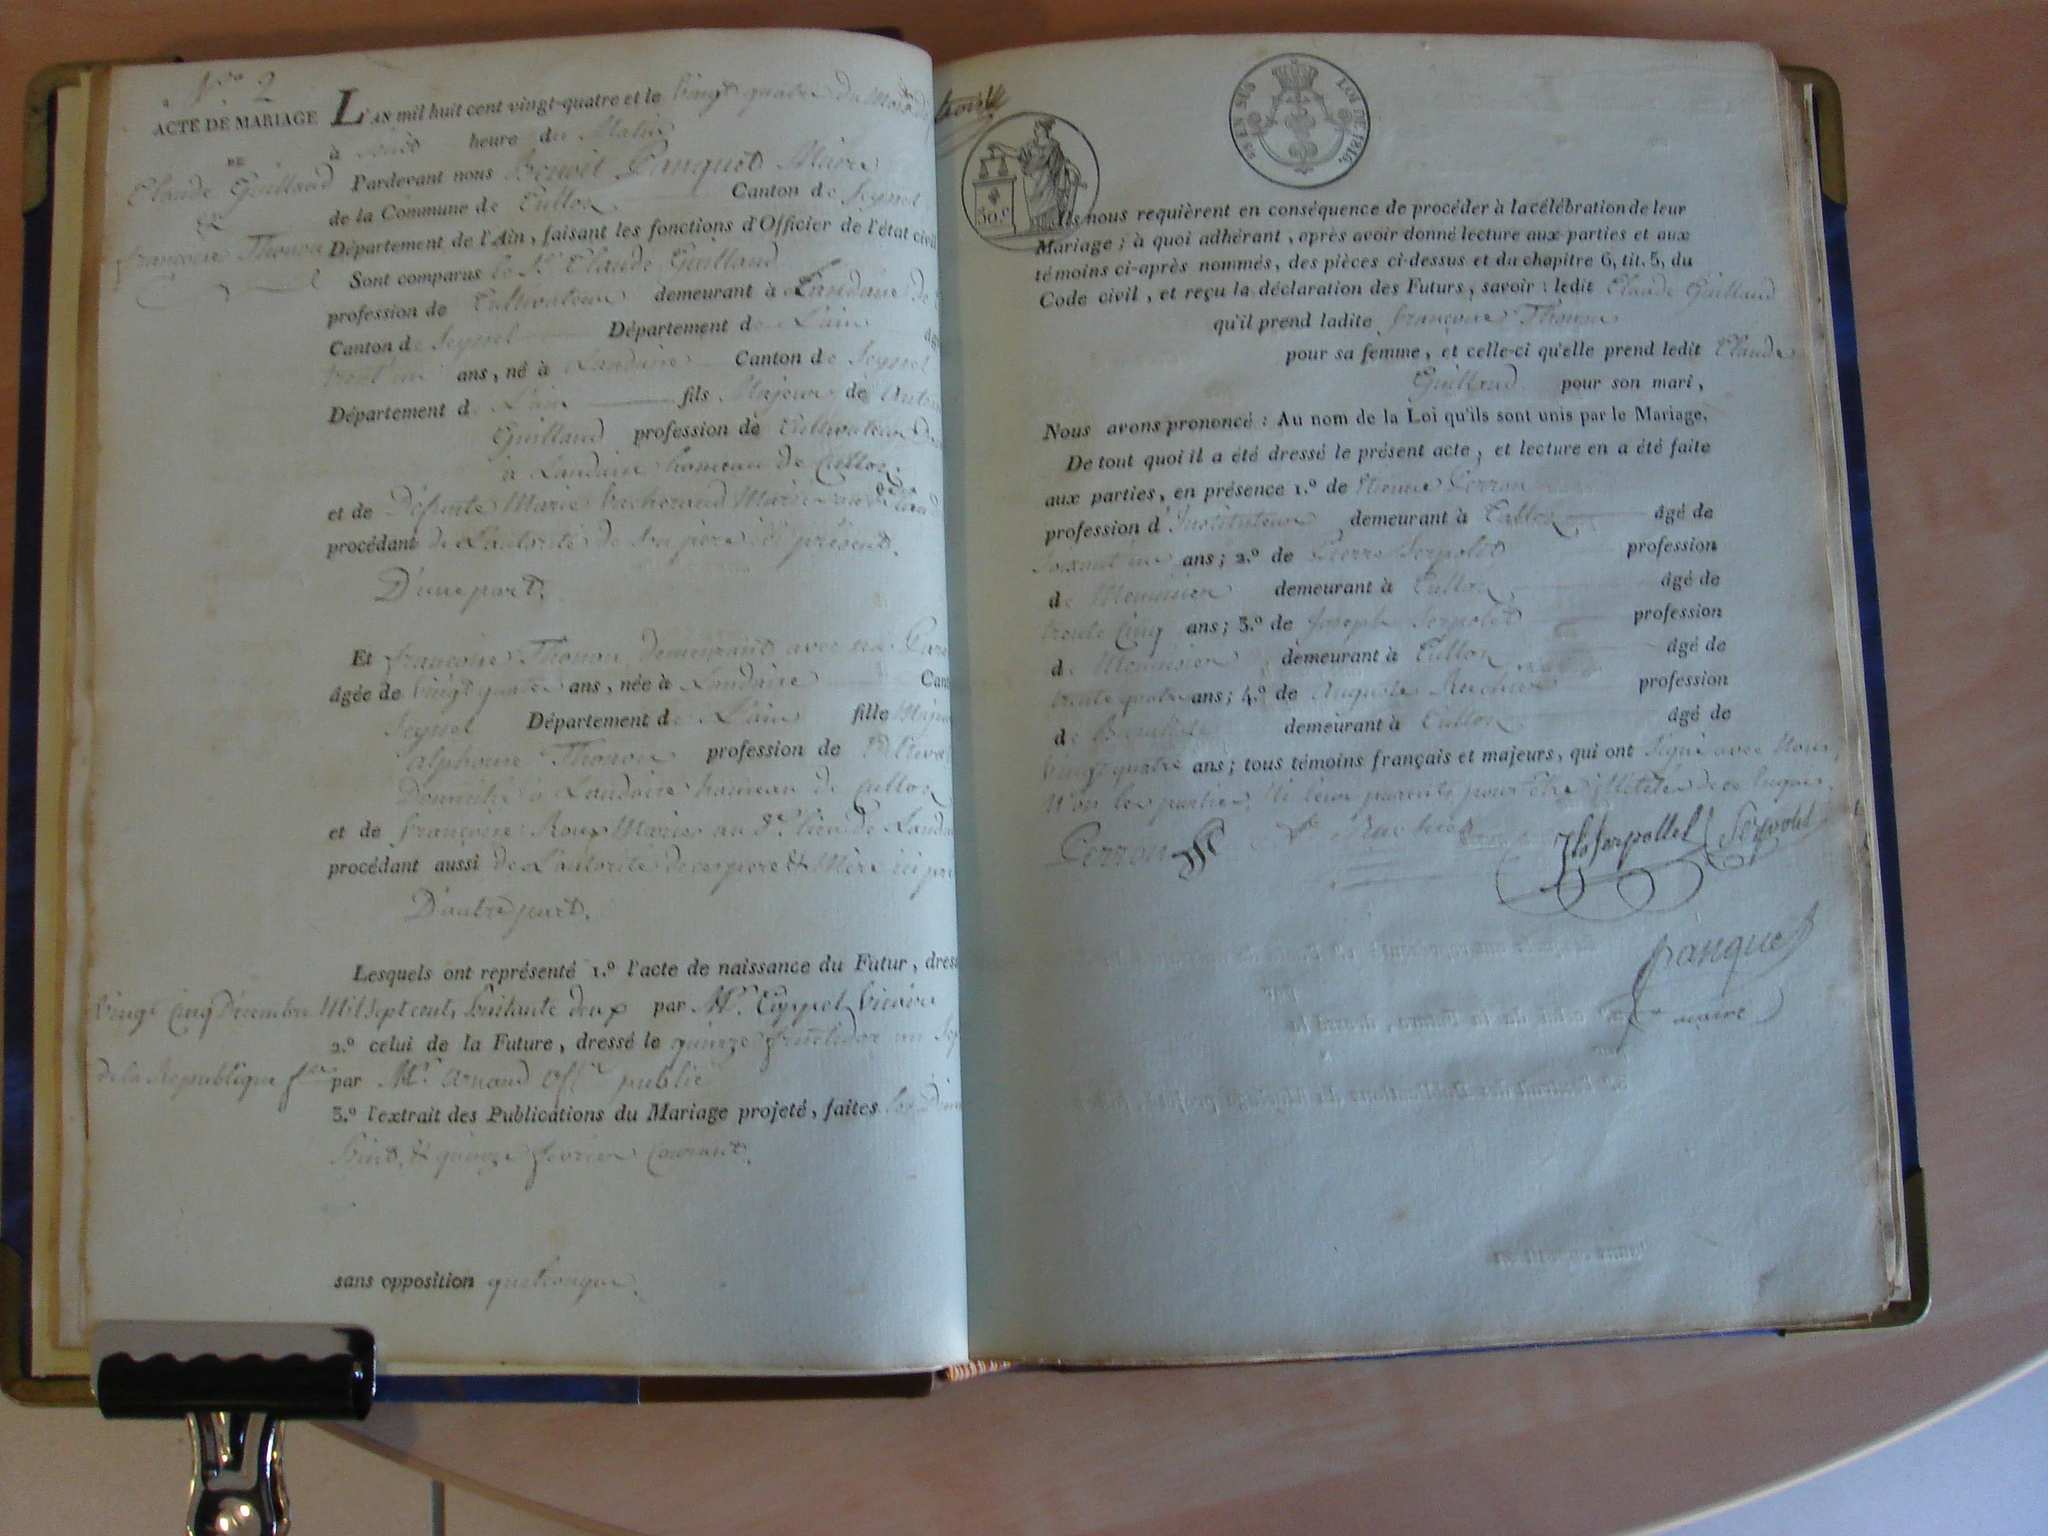 N.º 2
ACTE DE MARIAGE
DE
Claude Guilland
&
françoise Thonon
L'AN mil huit cent vingt-quatre et le vingt quatre du Mois de
à heure du Matin
Pardevant nous Benoit Panquet Maire
de la Commune de Culloz Canton de Seyssel
Département de l'Ain, faisant les fonctions d'Officier de l'état civil
Sont comparus le S.r Claude Guilland
profession de Cultivateur demeurant à Landaise de
Canton de Seyssel Département de L'ain âgé
trent'un ans, né à Landaise Canton de Seyssel
Département de L'ain fils Majeur de Antoine
Guilland profession de Cultivateur
à Landaise hameau de Culloz
et de Défunte Marie Vacherand Mariés au d.
procédant de L'autorité de Son père ici présent.
D'une part.
Et françoise Thonon, demeurant avec ses Pare
âgée de vingt quatre ans, née à Landaise Cant
Seyssel Département de L'ain fille Majeu
alphonse Thonon profession de Cultivat
Domicilié à Landaise hameau de Culloz
et de françoise Roux Mariés au d.t lieu de Landa
procédant aussi de L'autorité de ses père & Mère ici pré
D'autre part.
Lesquels ont représenté 1.º l'acte de naissance du Futur, dres
vingt cinq Décembre Mil sept cents huitante deux par M.r vicaire
2.º celui de la Future, dressé le quinze fructidor an Sep
de la Republique par M.r arnaud off. public
3.º l'extrait des Publications du Mariage projeté, faites les Dim
huit, & quinze fevrier Courant.
sans opposition quelconque.
30.c
53 EN SUS LOI DE 1816.
Ils nous requièrent en conséquence de procéder à la célébration de leur
Mariage; à quoi adhérant, après avoir donné lecture aux parties et aux
témoins ci-après nommés, des pièces ci-dessus et du chapitre 6, tit. 5, du
Code civil, et reçu la déclaration des Futurs, savoir: ledit Claude Guilland
qu'il prend ladite françoise Thonon
pour sa femme, et celle-ci qu'elle prend ledit Claude
Guilland pour son mari,
Nous avons prononcé: Au nom de la Loi qu'ils sont unis par le Mariage.
De tout quoi il a été dressé le présent acte, et lecture en a été faite
aux parties, en présence 1.º de Etienne Perron
profession d'Instituteur demeurant à Culloz âgé de
soixant'un ans; 2.º de Pierre Serpolet profession
de Menuisier demeurant à Culloz âgé de
trente Cinq ans; 3.º de Joseph Serpolet profession
de Menuisier demeurant à Culloz âgé de
trente quatre ans; 4.º de Auguste Ruchier profession
de demeurant à Culloz âgé de
vingt quatre ans; tous témoins français et majeurs, qui ont signé avec Nous
N'on les parties, Ni leurs parents pour être illiteres de ce Requis.
Perron
Ruchier
Serpollet
Serpolet
Panquet
maire